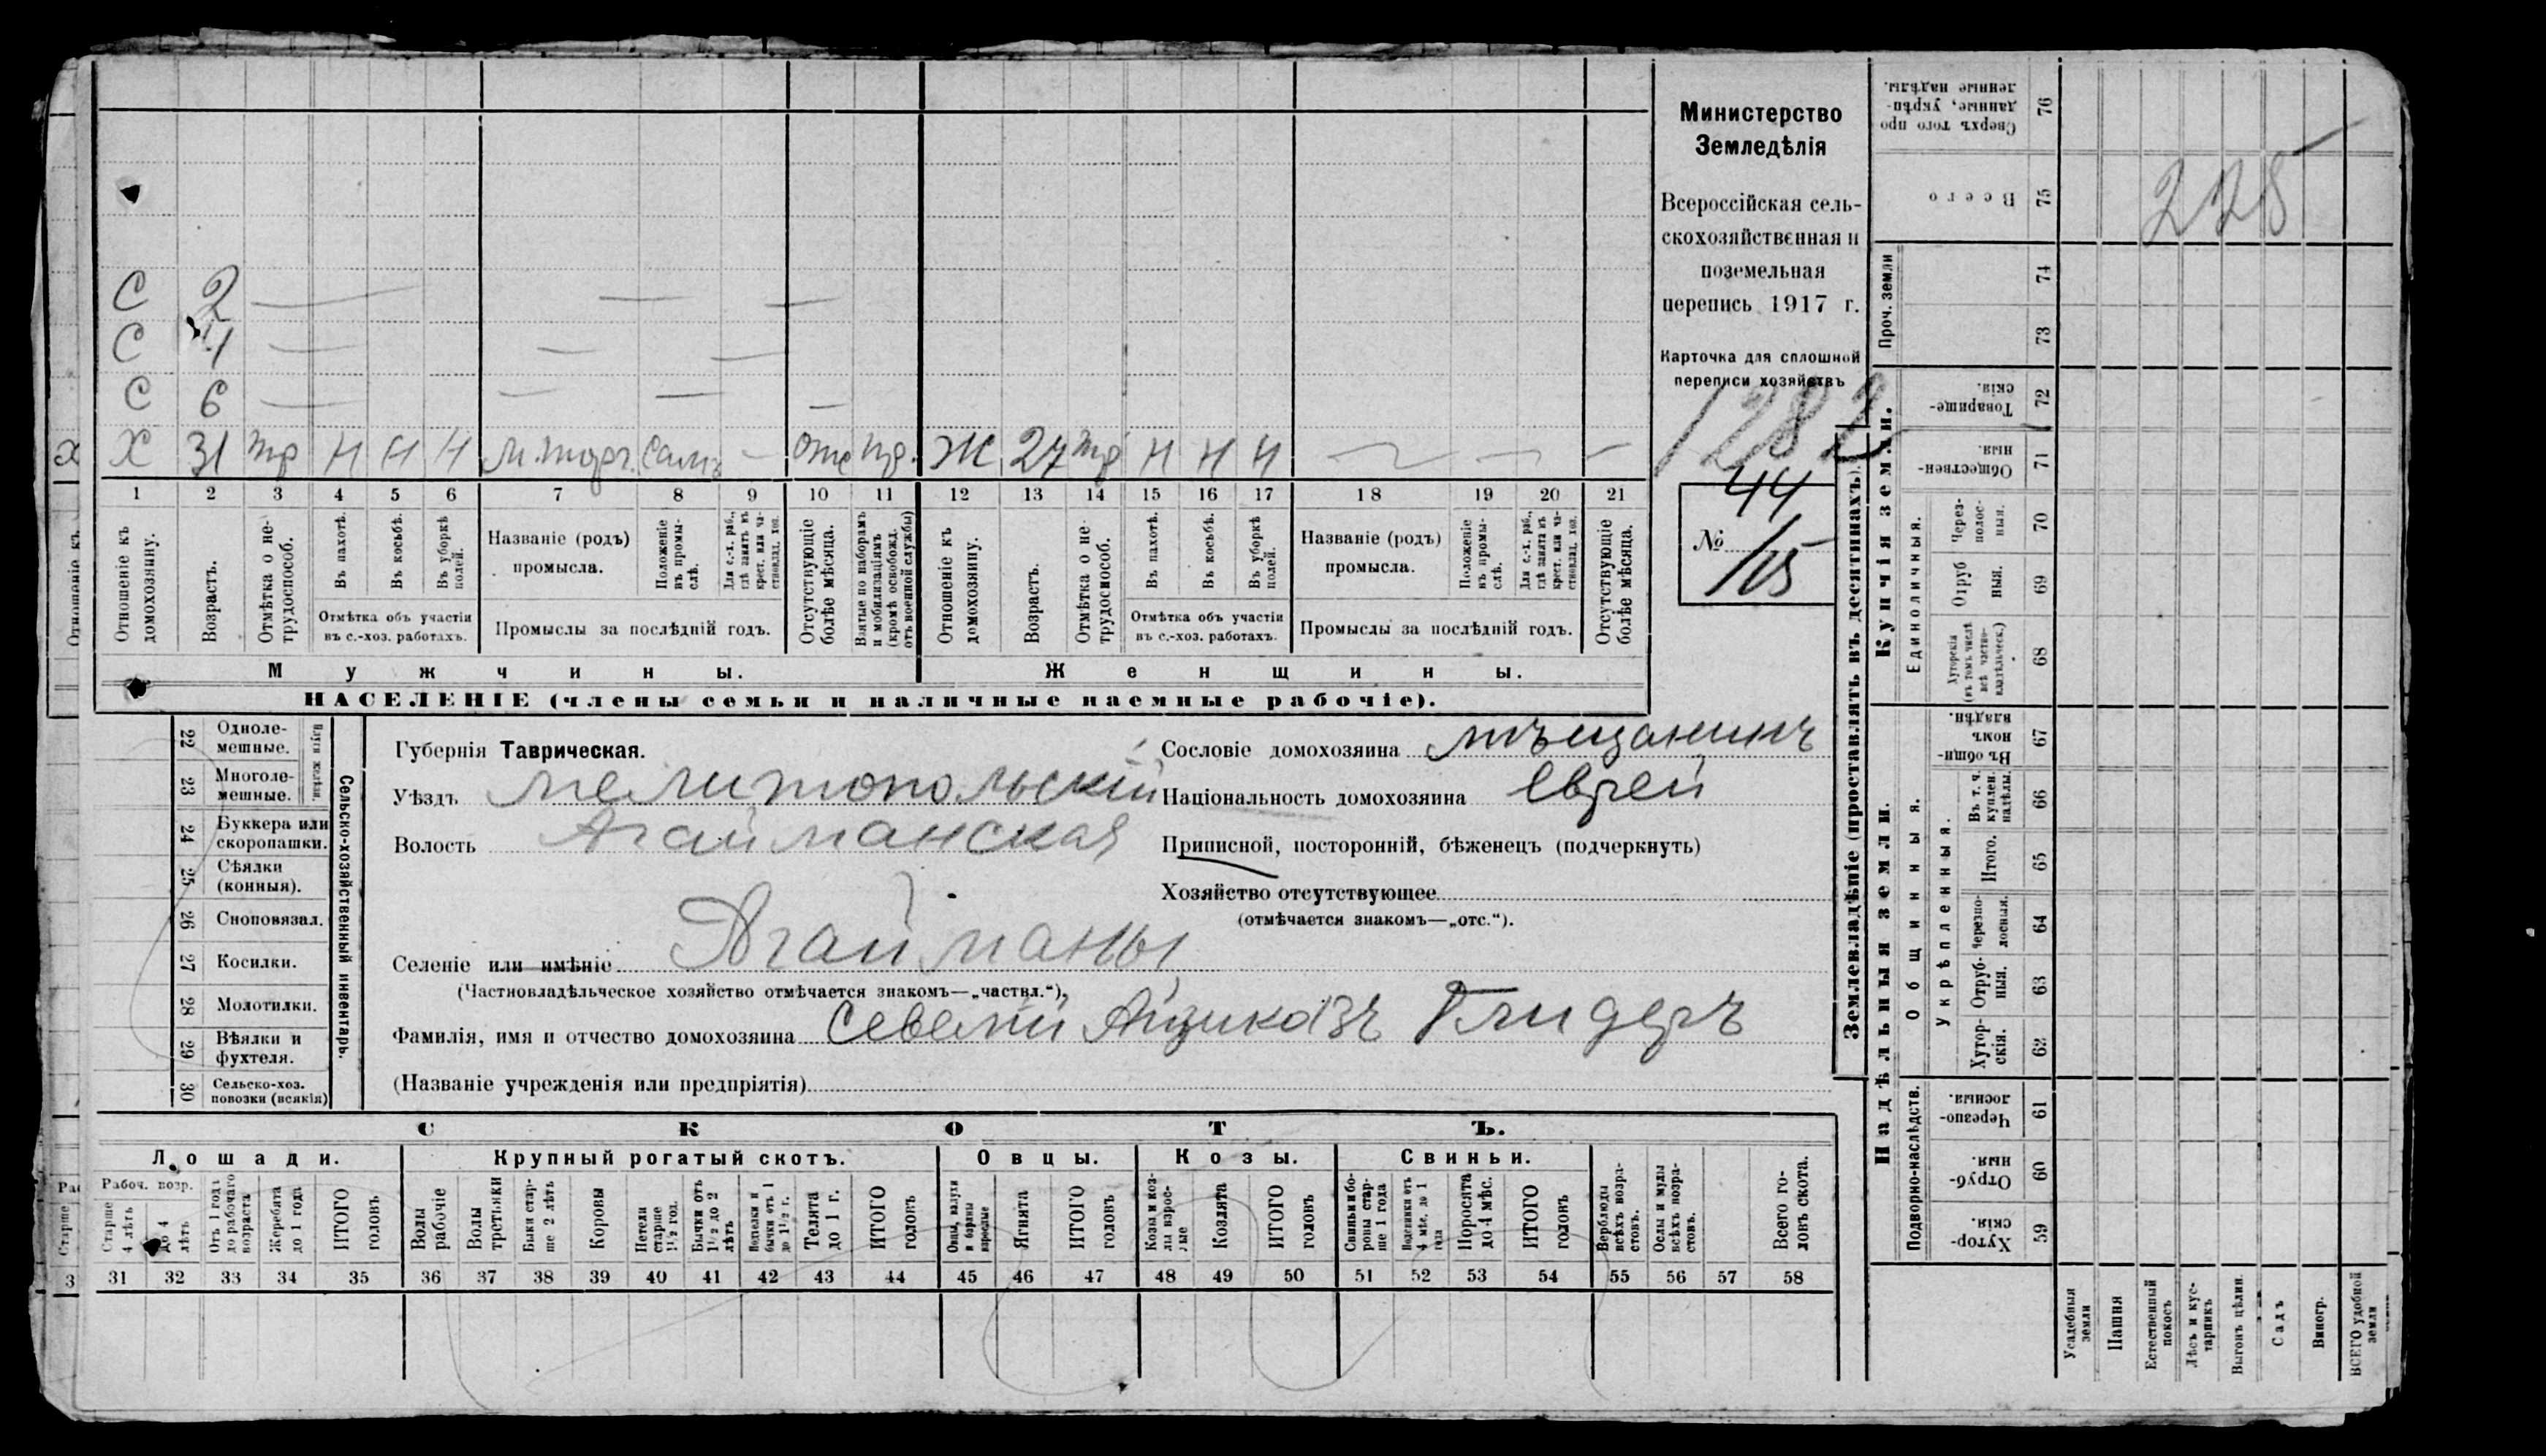 С 2 — — —
С 4 — — —
С 6 — — — —
Х 31 тр Н Н Н м. торг. Самъ — отс пр. Ж 27 тр Н Н Н — — —
1 2 3 4 5 6 7 8 9 10 11 12 13 14 15 16 17 18 19 20 21
Отношеніе къ домохозяину.
Возрастъ.
Отмѣтка о не-трудоспособ.
Въ пахотѣ.
Въ косьбѣ.
Въ уборкѣ полей.
Отмѣтка объ участіи
въ с.-хоз. работахъ.
Названіе (родъ)
промысла.
Положеніе въ промы-слѣ.
Для с.-х. раб., гдѣ занятъ въ крест. или ча-стновлад. хоз.
Промыслы за послѣдній годъ.
Отсутствующіе болѣе мѣсяца.
Взятые по наборамъ и мобилизаціямъ (кромѣ освобожд. отъ военной службы)
Отношеніе къ домохозяину.
Возрастъ.
Отмѣтка о не-трудоспособ.
Въ пахотѣ.
Въ косьбѣ.
Въ уборкѣ полей.
Отмѣтка объ участіи
въ с.-хоз. работахъ.
Названіе (родъ)
промысла.
Положеніе въ промы-слѣ.
Для с.-х. раб., гдѣ занята въ крест. или ча-стновлад. хоз.
Промыслы за послѣдній годъ.
Отсутствующіе болѣе мѣсяца.
Мужчины. Женщины.
НАСЕЛЕНІЕ (члены семьи и наличные наемные рабочіе).
Министерство
Земледѣлія
Всероссійская сель-
скохозяйственная и
поземельная
перепись 1917 г.
Карточка для сплошной
переписи хозяйствъ
1282
44
№ 1/15
22 Одноле-мешные.
23 Многоле-мешные.
Плуги желѣзн.
24 Буккера или скоропашки.
25 Сѣялки (конныя).
26 Сноповязал.
27 Косилки.
28 Молотилки.
29 Вѣялки и фухтеля.
30 Сельско-хоз. повозки (всякія)
Сельско-хозяйственный инвентарь.
Губернія Таврическая.
Уѣздъ Мелитопольскій
Волость Агайманская
Селеніе или имѣніе Агайманы
(Частновладѣльческое хозяйство отмѣчается знакомъ—„частвл.“).
Фамилія, имя и отчество домохозяина Севелій Айзиковъ Глидеръ
(Названіе учрежденія или предпріятія)
Сословіе домохозяина мѣщанинъ
Національность домохозяина еврей
Приписной, посторонній, бѣженецъ (подчеркнуть)
Хозяйство отсутствующее
(отмѣчается знакомъ—„отс.“).
СКОТЪ.
Лошади. Крупный рогатый скотъ. Овцы. Козы. Свиньи.
Рабоч. возр.
Старше 4 лѣтъ
до 4 лѣтъ
Отъ 1 года до рабочаго возраста
Жеребята до 1 года
ИТОГО головъ
Волы рабочіе
Волы третьяки
Быки стар-ше 2 лѣтъ
Коровы
Нетели старше 1½ год.
Бычки отъ 1½ до 2 лѣтъ
Нетелки и бычки отъ 1 до 1½ г.
Телята до 1 г.
ИТОГО головъ
Овцы, валухи и бараны взрослые
Ягнята
ИТОГО головъ
Козы и коз-лы взрос-лые
Козлята
ИТОГО головъ
Свиньи и бо-ровы стар-ше 1 года
Подсвинки отъ 4 мѣс. до 1 года
Поросята до 4 мѣс.
ИТОГО головъ
Верблюды всѣхъ возра-стовъ.
Ослы и мулы всѣхъ возра-стовъ.
Всего го-ловъ скота.
31 32 33 34 35 36 37 38 39 40 41 42 43 44 45 46 47 48 49 50 51 52 53 54 55 56 57 58
Землевладѣніе (проставлять въ десятинахъ).
Надѣльныя земли.
Купчія земли.
Проч. земли
Подворно-наслѣдств.
Общинныя.
Укрѣпленныя.
Единоличныя.
Хутор-скія. 59
Отруб-ныя. 60
Черезпо-лосныя. 61
Хутор-скія. 62
Отруб-ныя. 63
Черезпо-лосныя. 64
Итого. 65
Въ т. ч. куплен. надѣлы. 66
Въ общи-номъ владѣн. 67
Хуторскія (въ томъ числѣ всѣ частно-владѣльческ.) 68
Отруб ныя. 69
Через-полос-ныя. 70
Обществен-ныя. 71
Товарище-скія. 72
73
74
Всего 75
Сверхъ того про данные, укрѣп-ленные надѣлы. 76
228
Усадебныя земли
Пашня
Естественный покосъ
Лѣсъ и кус-тарникъ
Выгонъ цѣлин.
Садъ
Виногр.
ВСЕГО удобной земли